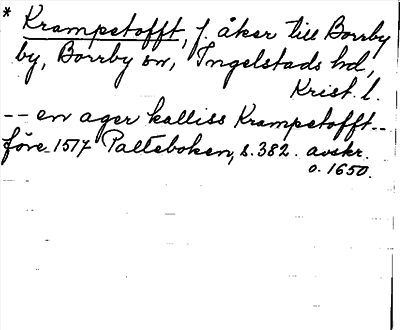 * Krampetofft, f. åker till Borrby
by, Borrby sn, Ingelstads hd,
Krist. l.
-- en ager kalliss Krampetofft --
före 1517 Palteboken, s. 382. avskr.
o. 1650.